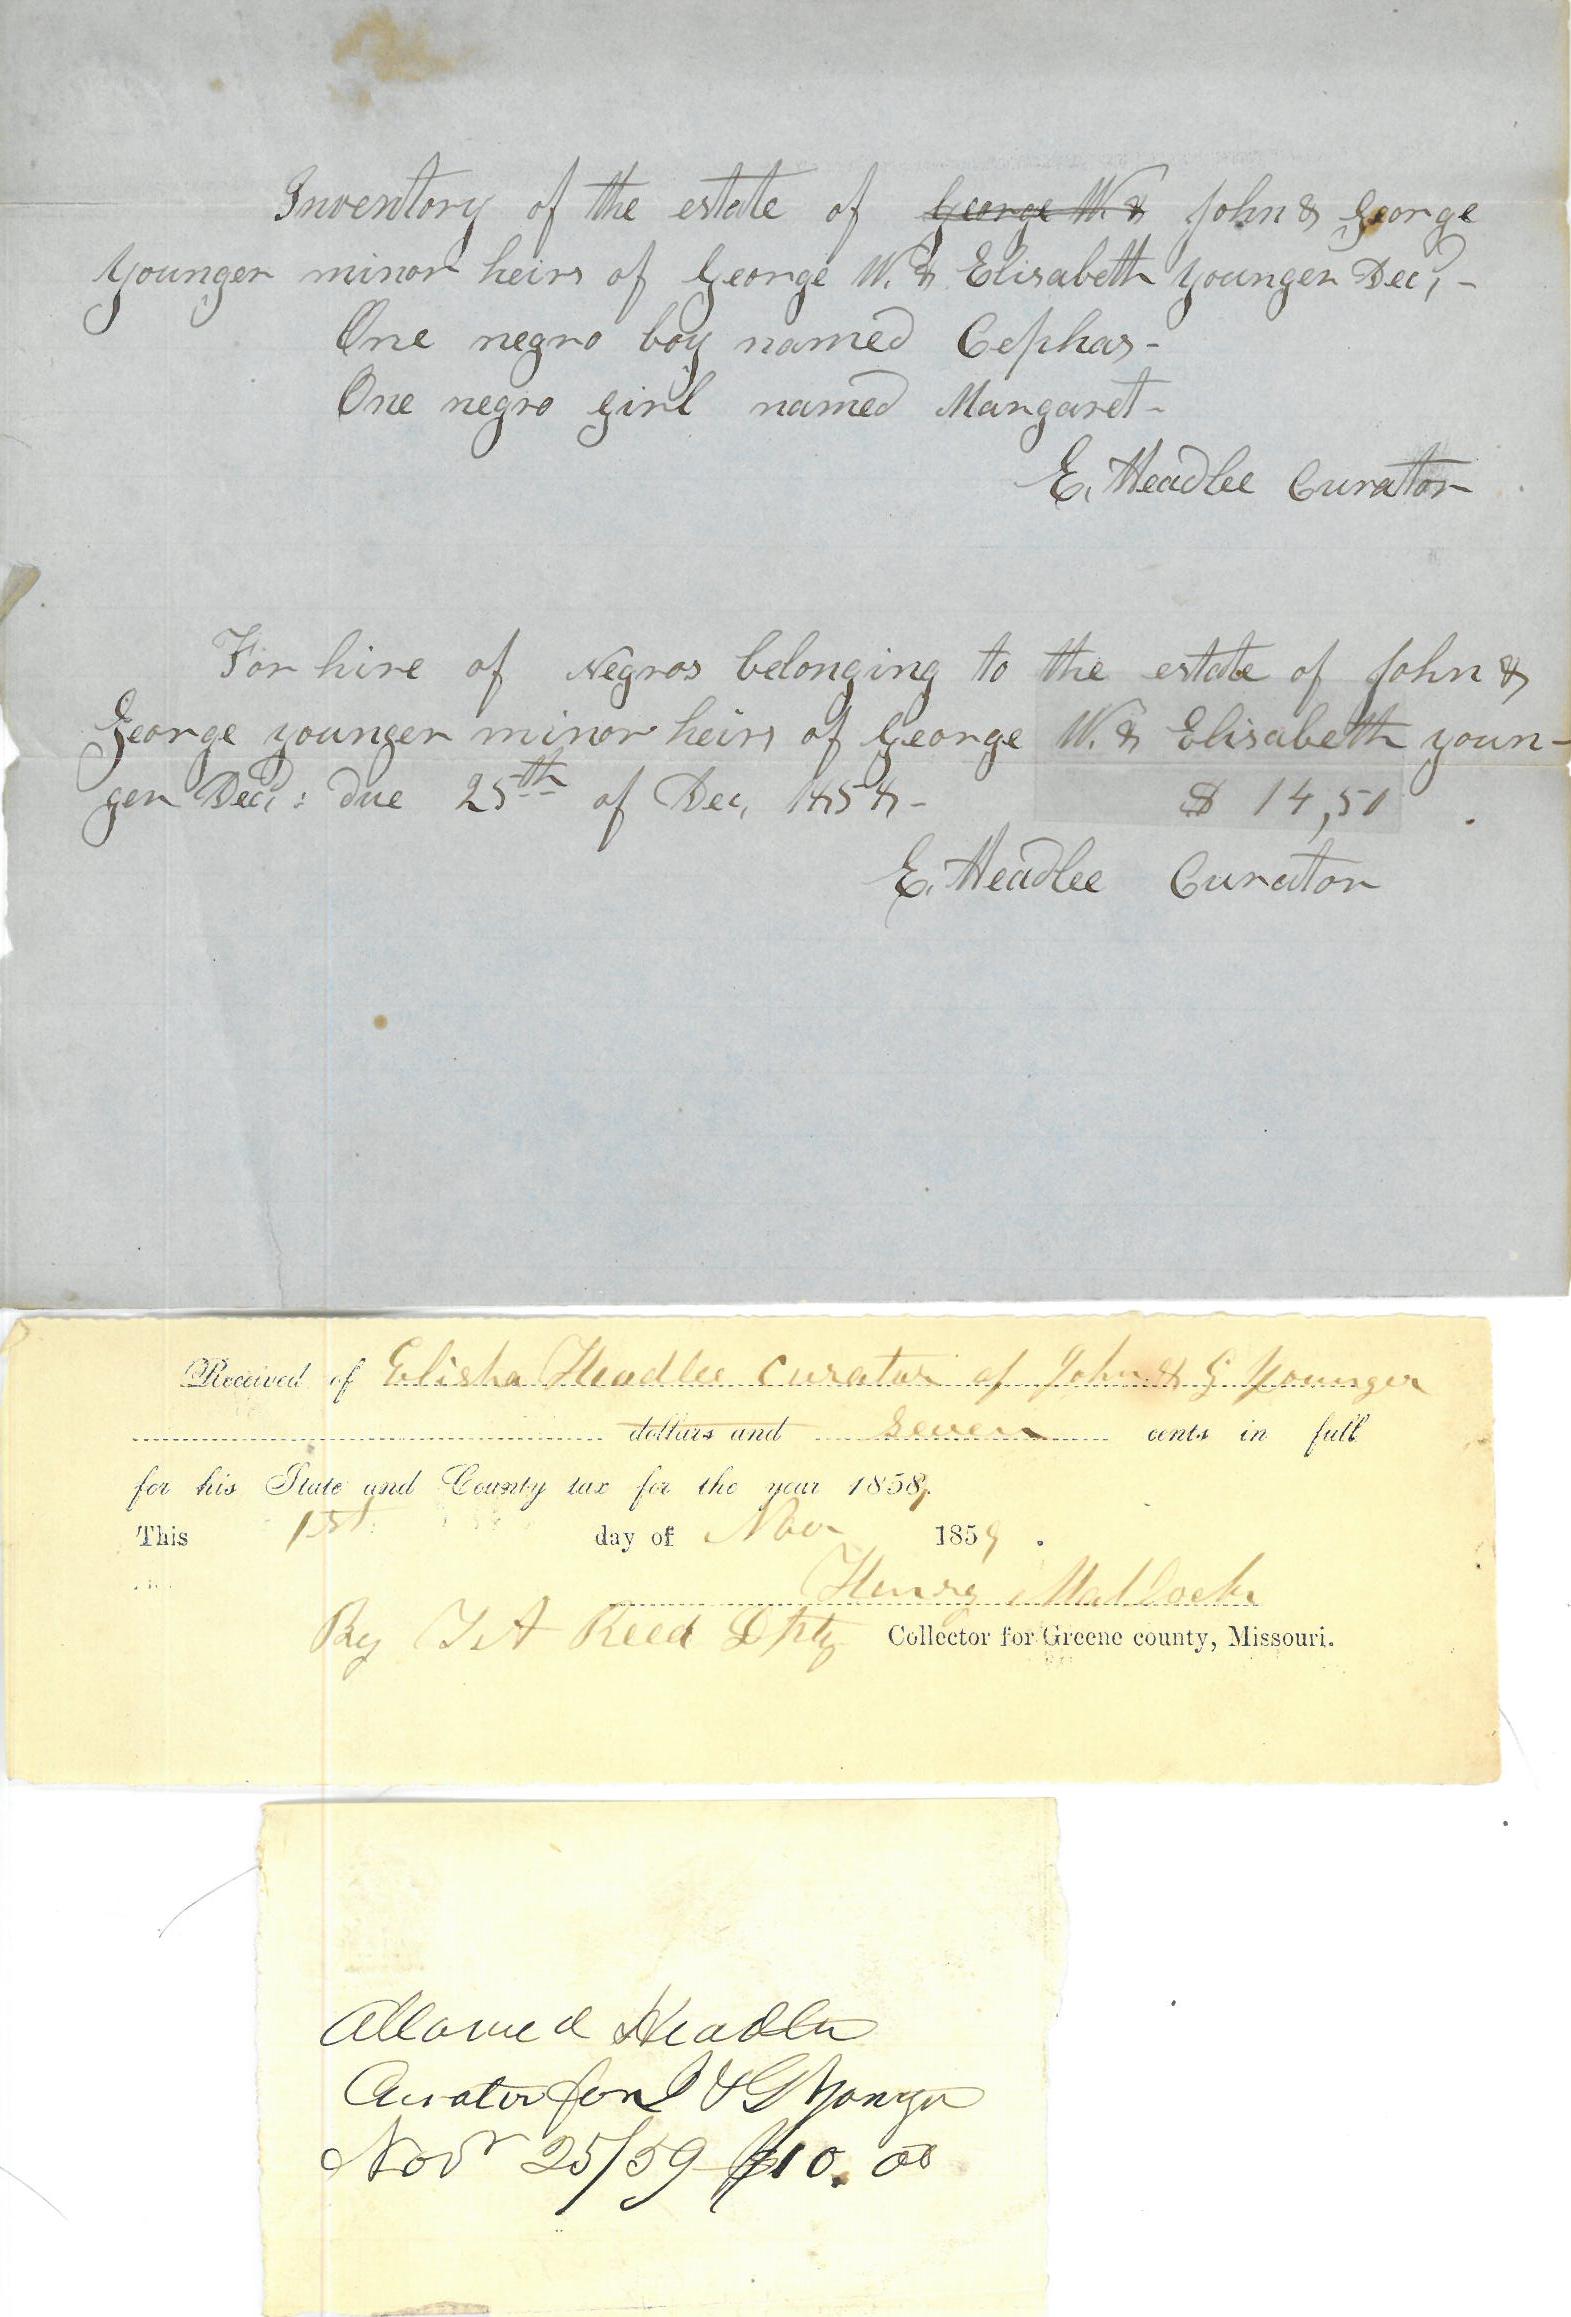 Inventory of the estate of George W. & John & George
Younger minor heirs of George W. & Elisabeth Younger Dec,d -
One negro boy named Cephas -
One negro girl named Margaret -
E. Headlee Curator
For hire of Negros belonging to the estate of John &
George younger minor heirs of George W. & Elisabeth youn-
ger Dec,d : due 25th of Dec, 1858 -   $ 14,50
E. Headlee Curator
Received of Elisha Headlee Curator of John & G Younger
dollars and seven cents in full
for his State and County tax for the year 1859.
This 1st day of Nov 1859.
Henry Matlock
By T A Reed Dpty Collector for Greene county, Missouri.
Allowed Headlee
Curator for J & G Younger
Novr 25/59 $10.00